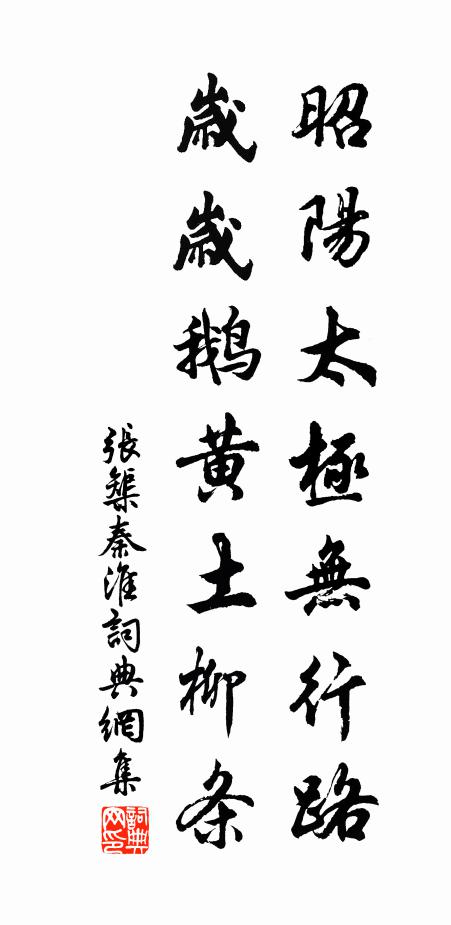 昭陽太極無行路
歲歲鵝黃土柳条
張榘秦淮詞典網集
詞典网印